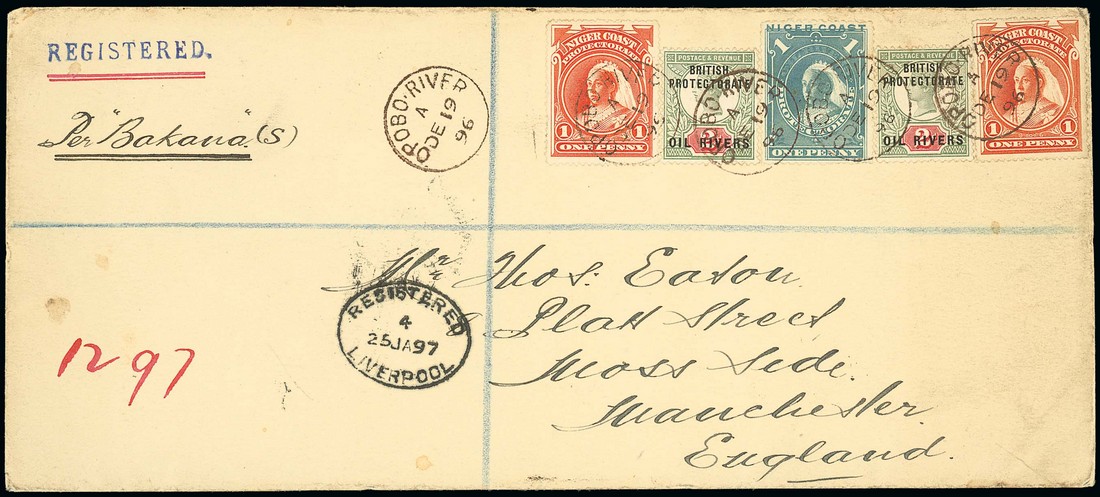 REGISTERED.
Per "Bakana" (S)
OPOBO·RIVER
A
DE 19
96
NIGER COAST
PROTECTORATE
1 1
ONE PENNY
POSTAGE & REVENUE
BRITISH
PROTECTORATE
OIL RIVERS
NIGER COAST
1 1
ONE PENNY
POSTAGE & REVENUE
BRITISH
PROTECTORATE
2d
OIL RIVERS
NIGER COAST
PROTECTORATE
1 1
ONE PENNY
REGISTERED
4
25JA97
LIVERPOOL
Mr Thos: Eaton
Platt Street
Moss Side.
Manchester
England
1297